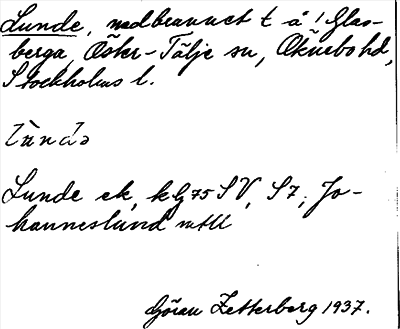 Lunde, nedbrunnet t å i Glas-
berga, Öster-Tälje sn, Öknebo hd,
Stockholms l.
lùndə
Lunde ek, kG 75 SV, S 7, Jo-
hanneslund mtll
Göran Zetterberg 1937.